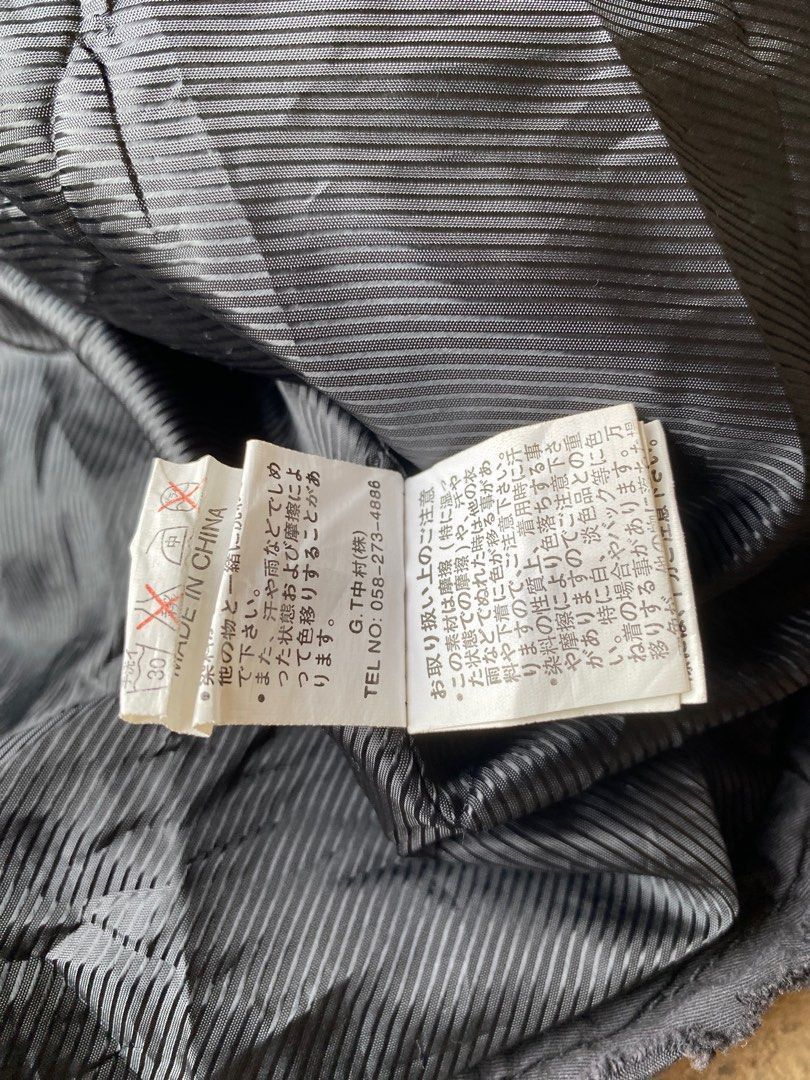 手洗イ
30
中
MADE IN CHINA
他の物と一緒に洗
で下さい。
•また、汗や雨などでしめ
った状態および摩擦によ
って色移りすることがあ
ります。
G.T中村(株)
TEL NO: 058-273-4886
お取り扱い上のご注意
•この素材は摩擦(特に湿っ
た状態での摩擦)や、汗や
雨などでぬれた時は他の衣
料や下着に色が移る事があ
りますのでご注意下さい。
•染料の性質上、着用時に汗
や摩擦により、色落ちする事
がありますのでご注意下さ
い。特に白・淡色品との重
ね着の場合やバック等に色
移りする事があります。万